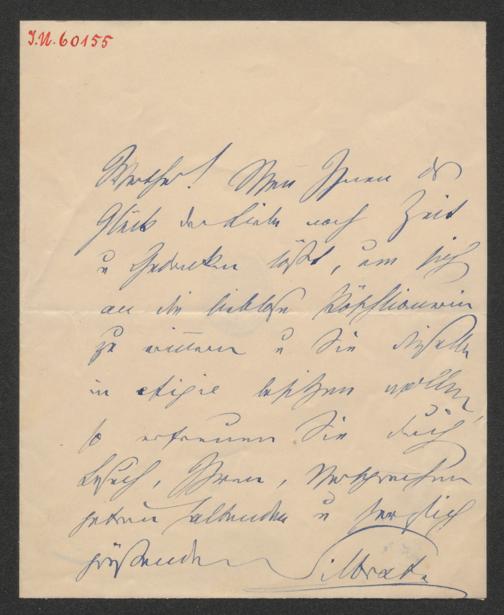 I.N. 60155
Werther! Wenn Ihnen das
Glück der Liebe noch Zeit
u Gedanken läßt, um sich
an die lieblose
zu erinnern u Sie dieselbe
in effigie besitzen wollen,
so erfreuen Sie durch
Besuch, Ihren, Versprechen
getreu haltenden u herzlich
grüßenden Silbrat.